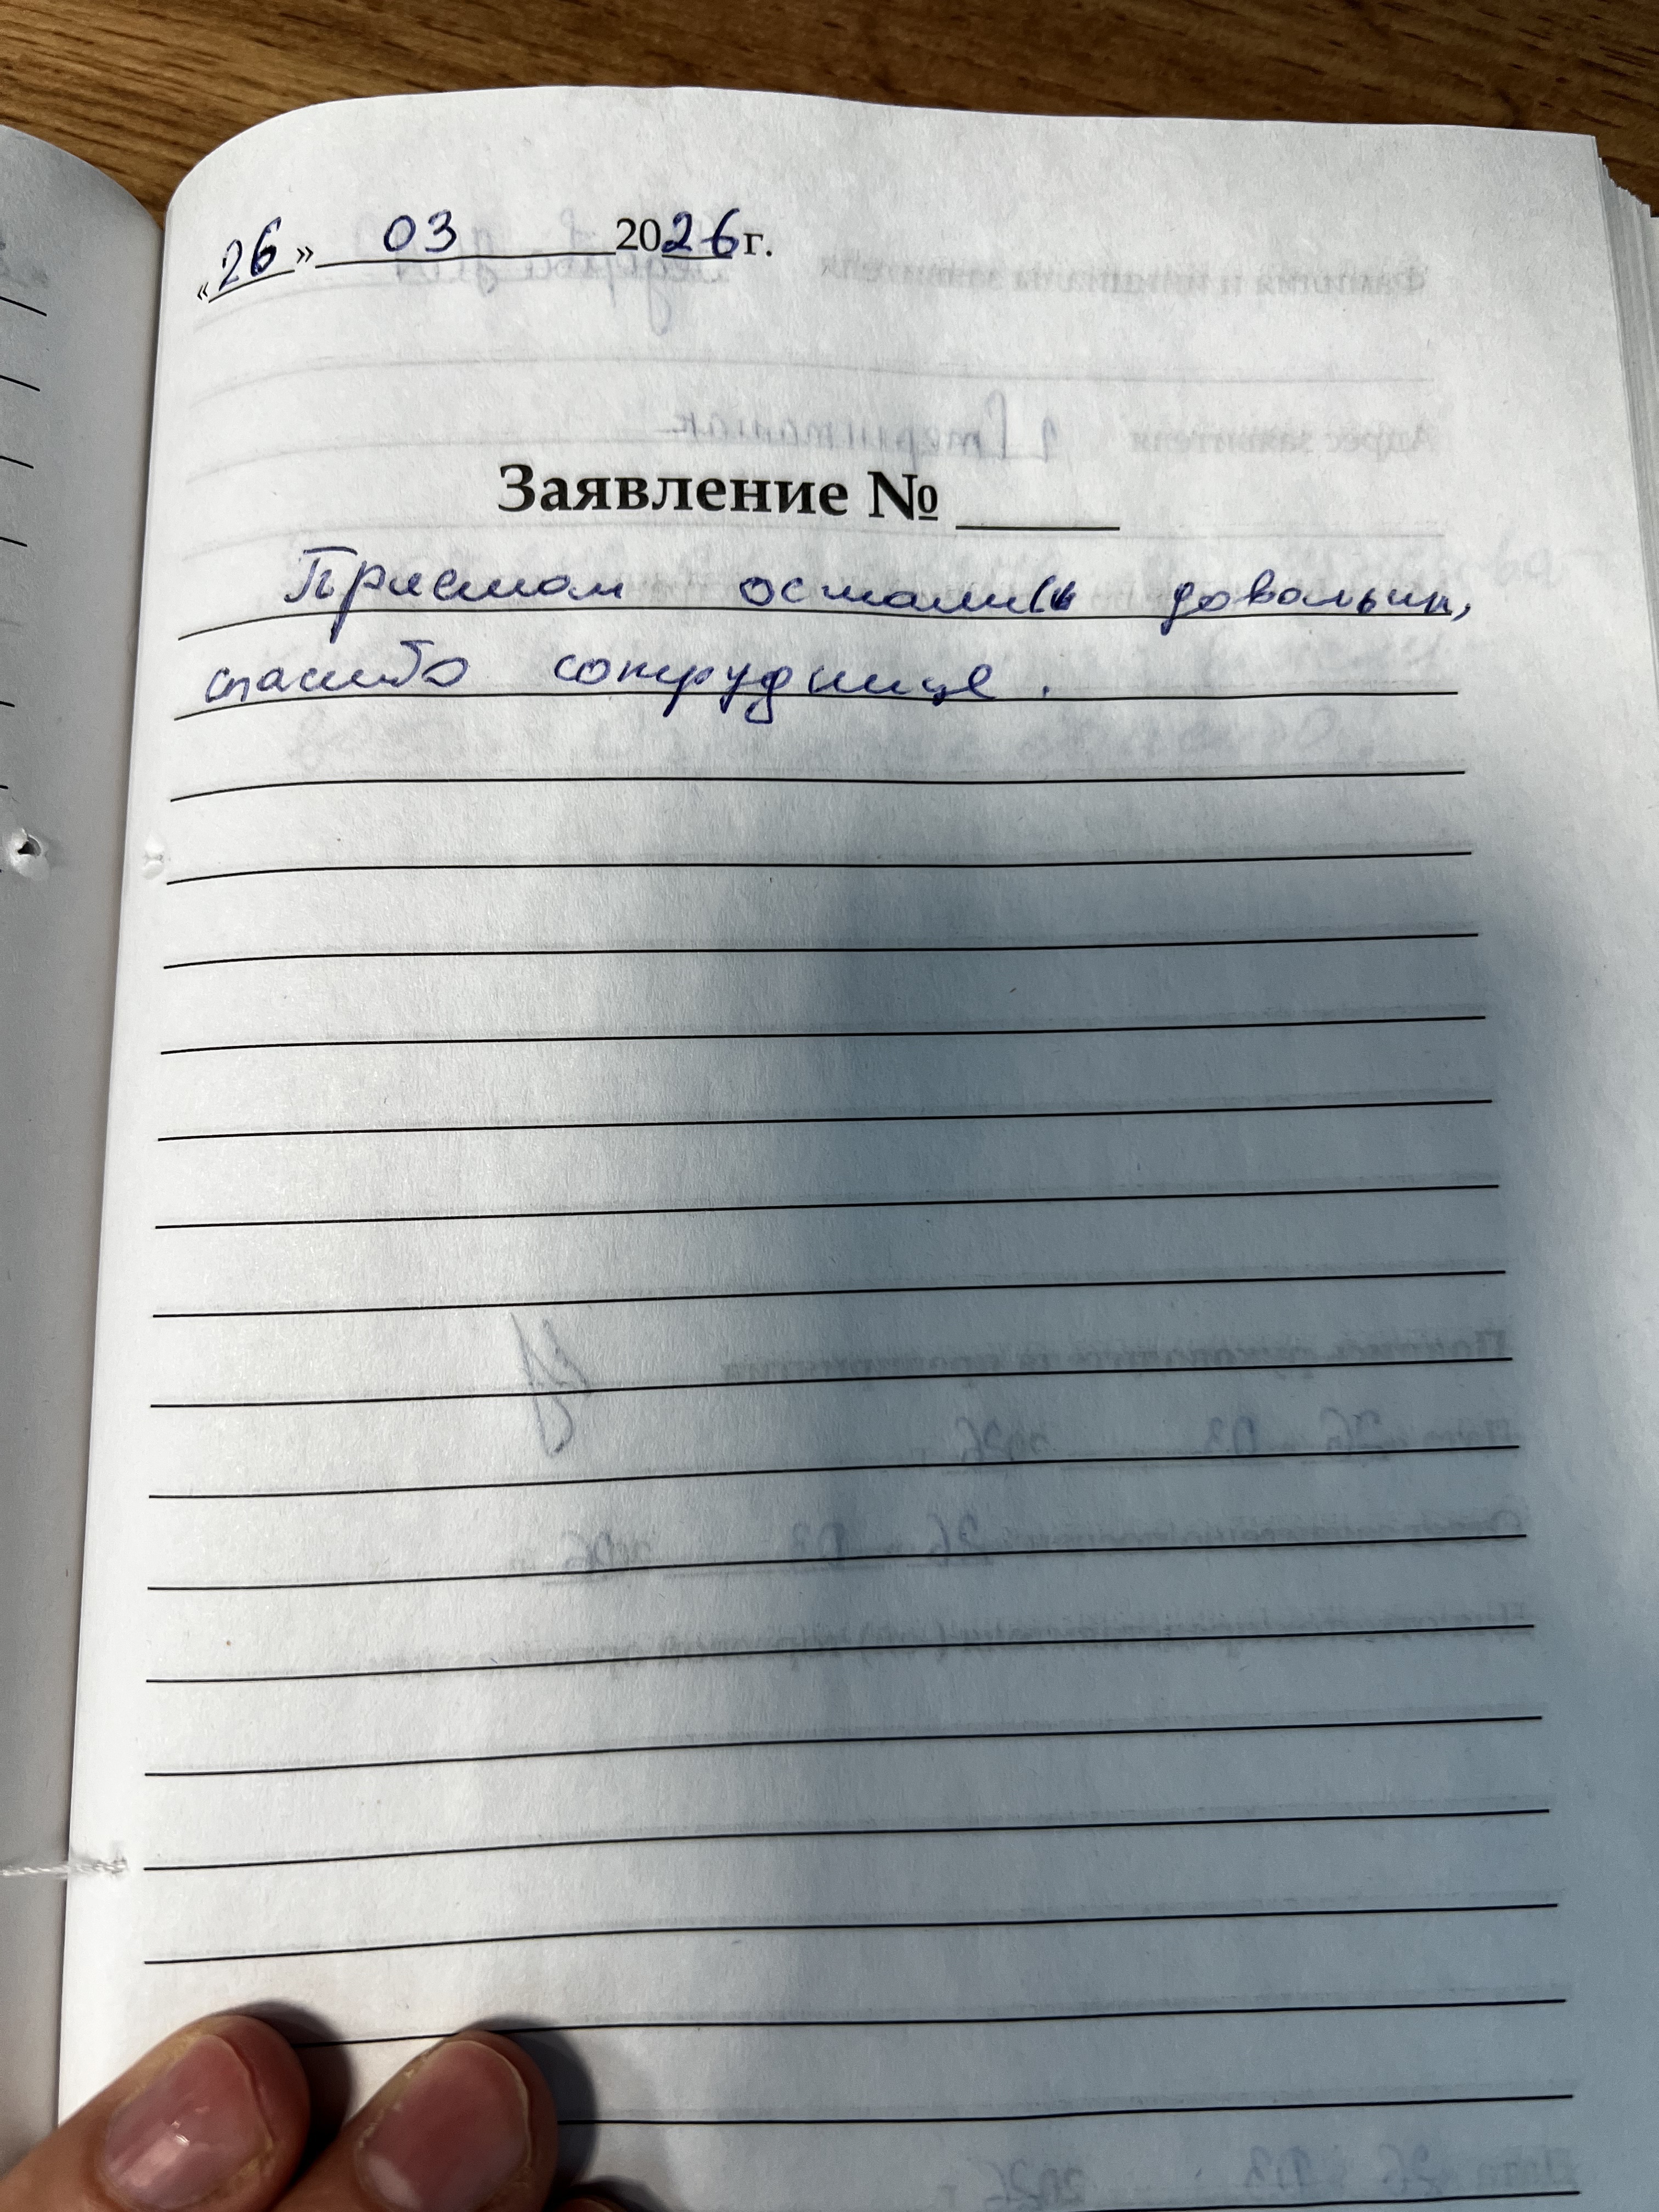 «26» 03 2026 г.
Заявление № ____
Приемом остались довольны,
спасибо сотруднице.